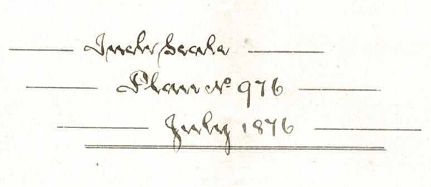 Inch Scale
Plan No 976
July 1876